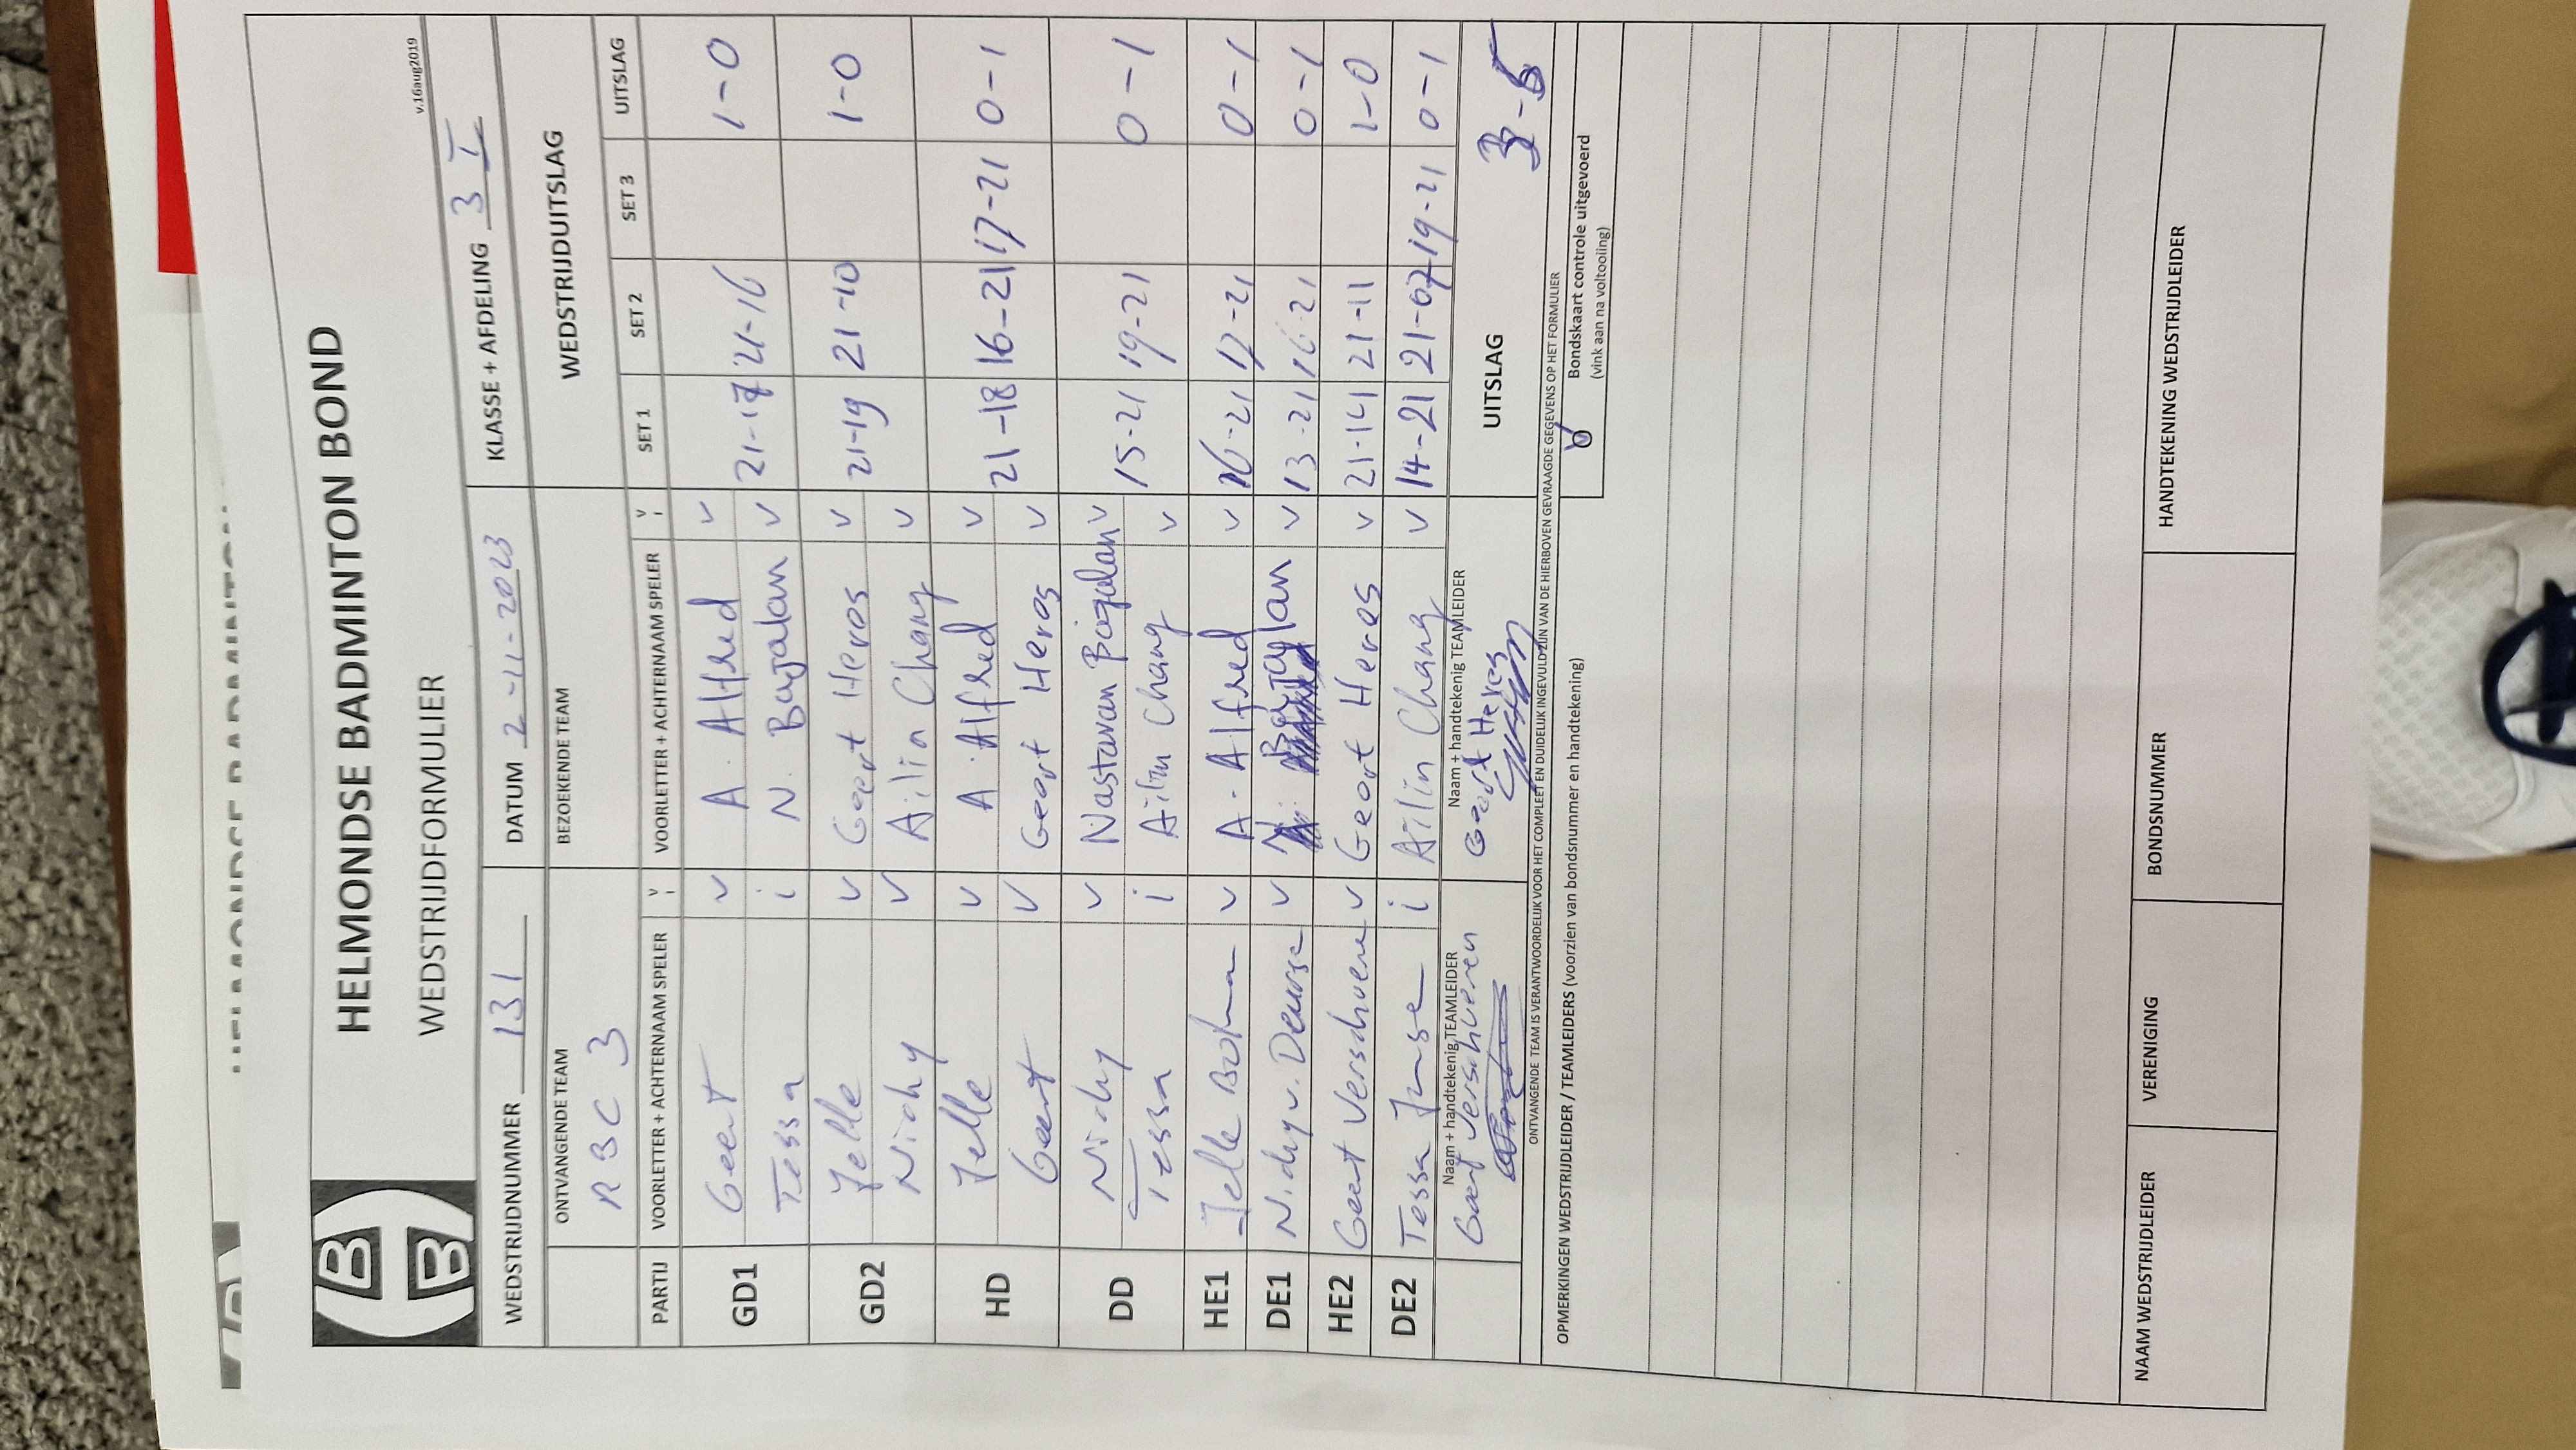 HELMONDSE BADMINTON BOND
WEDSTRIJDFORMULIER
v.16aug2019
WEDSTRIJDNUMMER 131 DATUM 2-11-2023 KLASSE + AFDELING 3 I
ONTVANGENDE TEAM BEZOEKENDE TEAM WEDSTRIJDUITSLAG
RBC 3
PARTIJ VOORLETTER + ACHTERNAAM SPELER V i VOORLETTER + ACHTERNAAM SPELER V i SET 1 SET 2 SET 3 UITSLAG
GD1 Geert v A. Alfred v 21-17 21-16 1-0
Tessa i N. Bajalan v
GD2 Jelle v Geert Heros v 21-19 21-10 1-0
Nicky v Ailin Chang v
HD Jelle v A. Alfred v 21-18 16-21 17-21 0-1
Geert v Geert Heros v
DD Nicky v Nastaran Bajalan v 15-21 19-21 0-1
Tessa i Ailin Chang v
HE1 Jelle v A. Alfred v 16-21 17-21 0-1
DE1 Nicky v. Deurse v N. Bajalan v 13-21 16-21 0-1
HE2 Geert Verschuere v Geert Heros v 21-14 21-11 1-0
DE2 Tessa Janse i Ailin Chang v 14-21 21-07 19-21 0-1
Naam + handtekenig TEAMLEIDER Naam + handtekenig TEAMLEIDER UITSLAG 3-5
Geert Verschueren Geert Heros
ONTVANGENDE TEAM IS VERANTWOORDELIJK VOOR HET COMPLEET EN DUIDELIJK INGEVULD ZIJN VAN DE HIERBOVEN GEVRAAGDE GEGEVENS OP HET FORMULIER
OPMERKINGEN WEDSTRIJDLEIDER / TEAMLEIDERS (voorzien van bondsnummer en handtekening)
Bondskaart controle uitgevoerd
(vink aan na voltooiing)
NAAM WEDSTRIJDLEIDER VERENIGING BONDSNUMMER HANDTEKENING WEDSTRIJDLEIDER